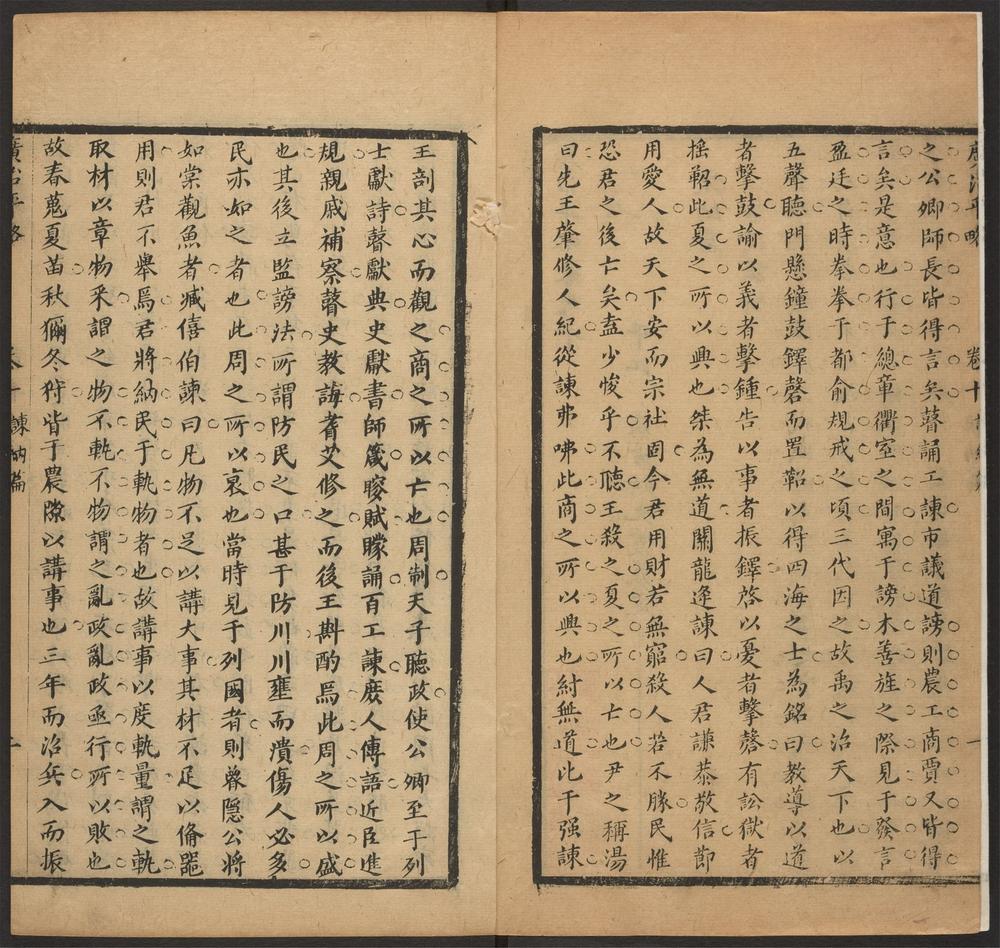 治平略 卷十
之公卿師長皆得言矣瞽誦工諫市議道謗則農工商賈又皆得
言矣是意也行于總章衢室之間寓于謗木善旌之際見于發言
盈廷之時拳拳于都俞規戒之頃三代因之故禹之治天下也以
五聲聽門懸鐘鼓鐸磬而置鞀以得四海之士為銘曰教導以道
者擊鼓諭以義者擊鍾告以事者振鐸啓以憂者擊磬有訟獄者
搖鞀此夏之所以興也桀為無道關龍逄諫曰人君謙恭敬信節
用愛人故天下安而宗社固今君用財若無窮殺人若不勝民惟
恐君之後亡矣盍少悛乎不聽王殺之夏之所以亡也尹之稱湯
曰先王肇修人紀從諫弗咈此商之所以興也紂無道比干强諫
王剖其心而觀之商之所以亡也周制天子聽政使公卿至于列
士獻詩瞽獻典史獻書師箴瞍賦矇誦百工諫庶人傳語近臣進
規親戚補察瞽史教誨耆艾修之而後王斟酌焉此周之所以盛
也其後立監謗法所謂防民之口甚于防川川壅而潰傷人必多
民亦如之者也此周之所以衰也當時見于列國者則魯隱公將
如棠觀魚者臧僖伯諫曰凡物不足以講大事其材不足以俻噐
用則君不舉焉君將納民于軌物者也故講事以度軌量謂之軌
取材以章物采謂之物不軌不物謂之亂政亂政亟行所以敗也
故春蒐夏苗秋獮冬狩皆于農隙以講事也三年而治兵入而振
廣治平略 卷十 諫納篇 二